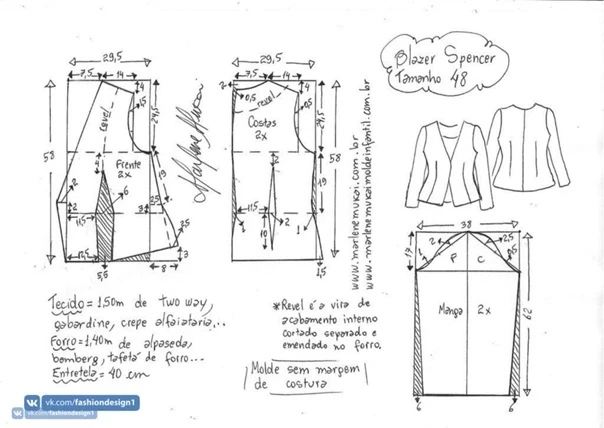 Blazer Spencer
Tamanho 48
29,5
7,5
14
4
2,5
24,5
revel
58
Frente
2x
4
6
19
2
2
11,5
3
2,5
12,5
5,5
2,5
8
3
Marlene Mukai
29,5
7,5
14
2
0,5
4
revel
0,5
24,5
Costas
2x
58
2
19
11,5
1
10
2
1
1,5
www.marlenemukai.com.br
www.marlenemukaimoldeinfantil.com.br
38
17
2
2,5
1
0,5
F
C
Manga
2x
62
6
6
Tecido = 1,50m de two way,
gabardine, crepe alfaiataria...
Forro = 1,40m de alpaseda,
bomberg, tafetá de forro...
Entretela = 40 cm
*Revel é a vira de
acabamento interno
cortado separado e
emendado no forro.
Molde sem margem
de costura
vk.com/fashiondesign1
vk.com/fashiondesign1